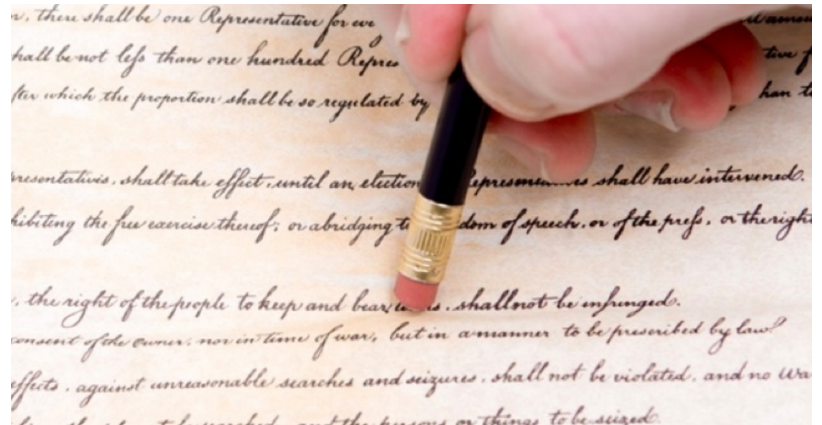 there shall be one Representative for
hall be not less than one hundred
which the proportion shall be so regulated by
shall take effect, until an election shall have intervened.
hibiting the free exercise thereof; or abridging of speech, or of the press, or the right
, the right of the people to keep and bear , shall not be infringed.
consent of the owner, nor in time of war, but in a manner to be prescribed by law.
effects, against unreasonable searches and seizures, shall not be violated, and no
and the persons or things to be seized.